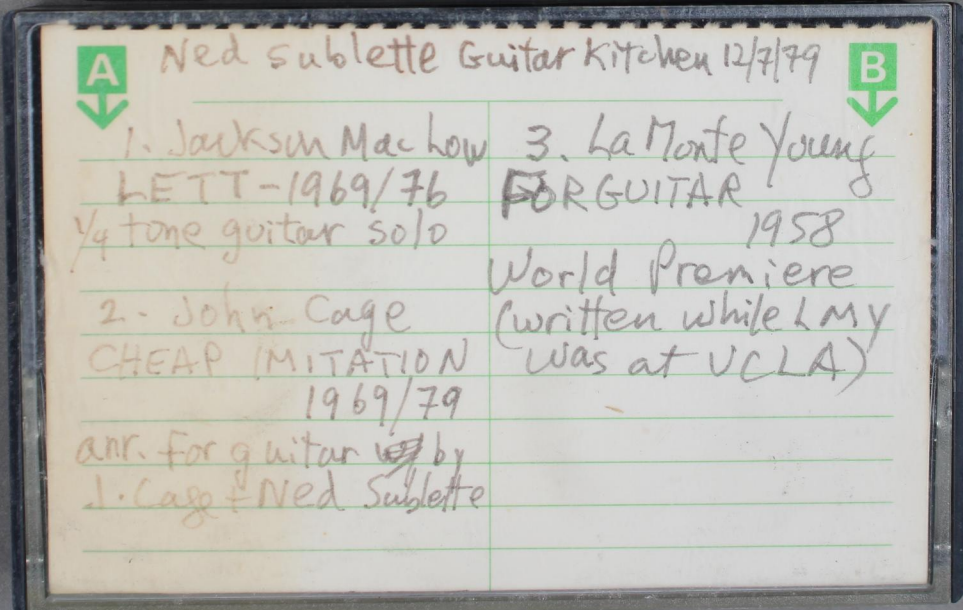 A
Ned Sublette Guitar Kitchen 12/7/79
B
1. Jackson Mac Low
LETT-1969/76
1/4 tone guitar solo
2. John Cage
CHEAP IMITATION
1969/79
arr. for guitar by
J. Cage + Ned Sublette
3. La Monte Young
FOR GUITAR
1958
World Premiere
(written while LMY
was at UCLA)